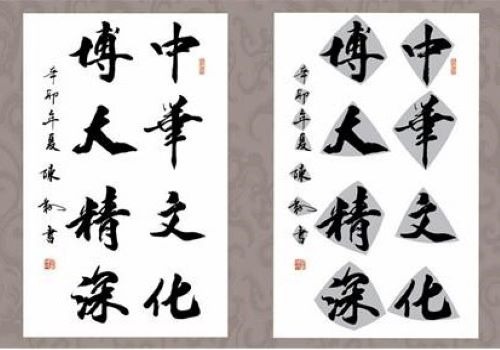 中華文化
博大精深
辛卯年夏 陳
書
中華文化
博大精深
辛卯年夏 陳
書